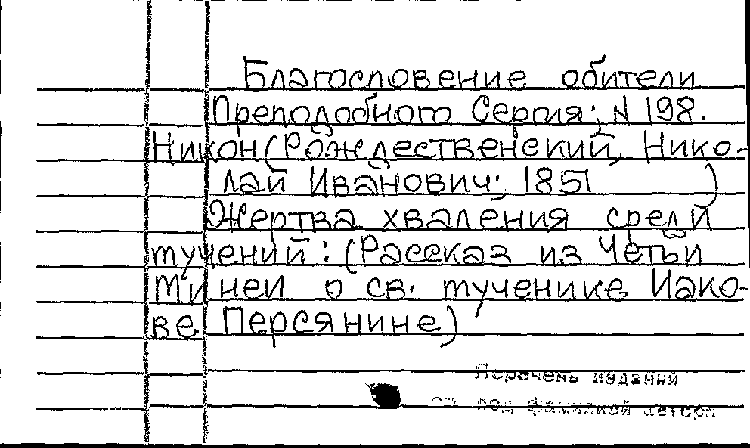 Благословение обители
Преподобного Сергия; N 198.
Никон (Рождественский, Нико-
лай Иванович; 1851 )
Жертва хваления среди
мучений: (Рассказ из Четьи
Миней о св. мученике Иако-
ве Персянине)
Перечень изданий
см. под фамилией автора